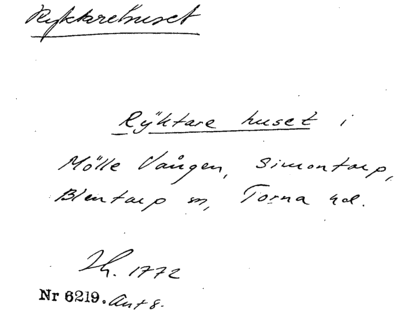 Ryktarehuset
Rÿktare huset i
Mölle Vången, Simontorp,
Blentarp sn, Torna hd.
Lh. 1772
Nr 6219. Ant 8.